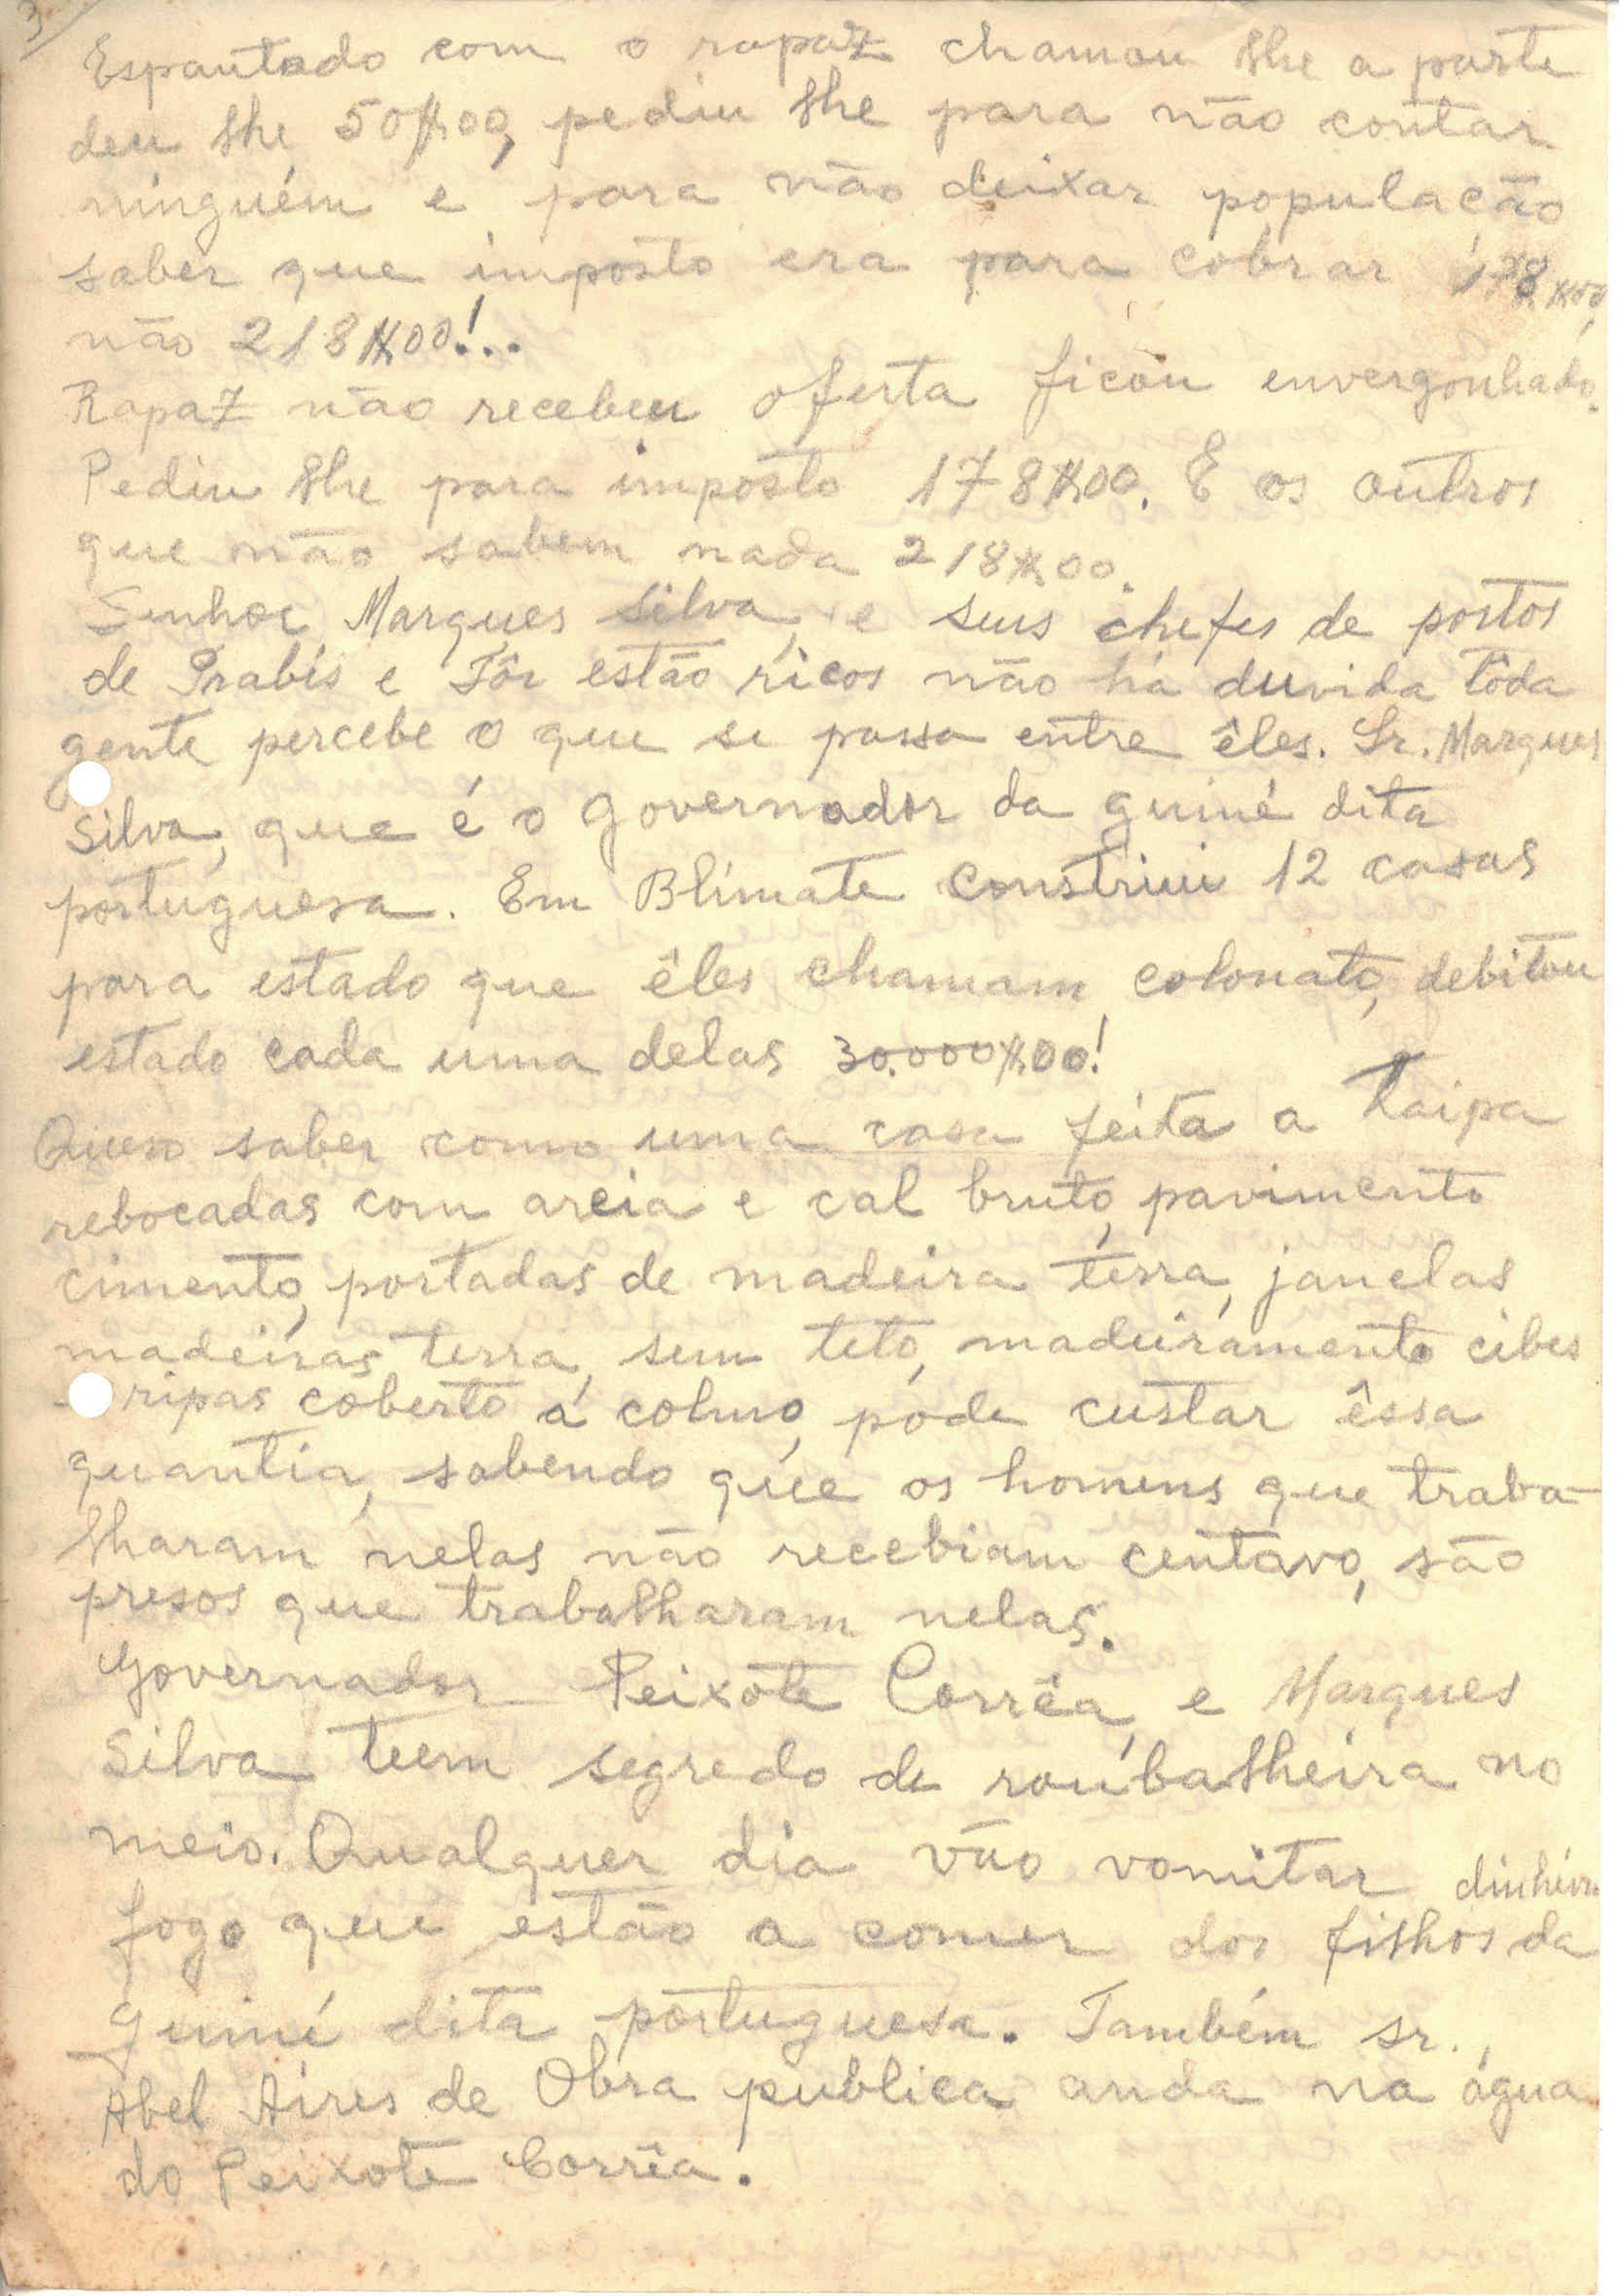 3
Espantado com o rapaz chamou lhe a parte
deu lhe 50$00, pediu lhe para não contar
ninguém e para não deixar população
saber que imposto era para cobrar 178$00
não 218$00!...
Rapaz não recebeu oferta ficou envergonhado.
Pediu lhe para imposto 178$00. E os outros
que não sabem nada 218$00.
Senhor Marques Silva, e seus chefes de postos
de Prabis e Tôr estão ricos não há duvida tôda
gente percebe o que se passa entre êles. Sr. Marques
Silva, que é o governador da guiné dita
portuguesa. Em Blimate construi 12 casas
para estado que êles chamam colonato, debitou
estado cada uma delas 30.000$00!
Quero saber como uma casa feita a Taipa
rebocadas com areia e cal bruto, pavimento
cimento, portadas de madeira terra, janelas
madeiras terra, sem teto, madeiramento cibes
ripas coberto á colmo, pode custar êssa
quantia, sabendo que os homens que traba-
lharam nelas não recebiam centavo, são
presos que trabalharam nelas.
Governador Peixote Corrêa, e Marques
Silva teem segredo de roubalheira no
meio. Qualquer dia vão vomitar dinheiro
fogo que estão a comer dos filhos da
guiné dita portuguesa. Também sr.
Abel Aires de Obra publica anda na água
do Peixote Corrêa.